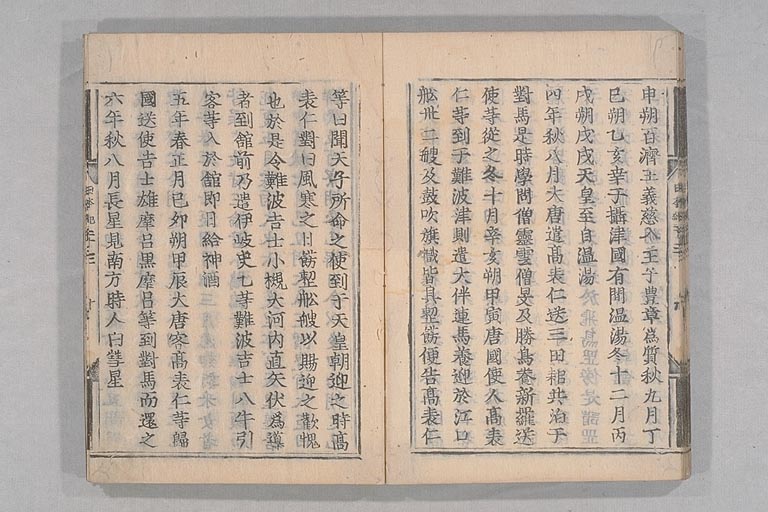 申朔百濟王義慈入王子豊章為質秋九月丁
巳朔乙亥幸于攝津國有間温湯冬十二月丙
戌朔戊戌天皇至自温湯
四年秋八月大唐遣高表仁送三田耜共泊于
對馬是時學問僧靈雲僧旻及勝鳥養新羅送
使等從之冬十月辛亥朔甲寅唐國使人高表
仁等到于難波津則遣大伴連馬養迎於江口
舩卅二艘及鼓吹旗幟皆具整餝便告高表仁
等曰聞天子所命之使到于天皇朝迎之時高
表仁對曰風寒之日餝整舩艘以賜迎之歡愧
也於是令難波吉士小槻大河内直矢伏為導
者到舘前乃遣伊岐史乙等難波吉士八牛引
客等入於舘即日給神酒
五年春正月己卯朔甲辰大唐客高表仁等歸
國送使吉士雄摩呂黒摩呂等到對馬而還之
六年秋八月長星見南方時人曰彗星